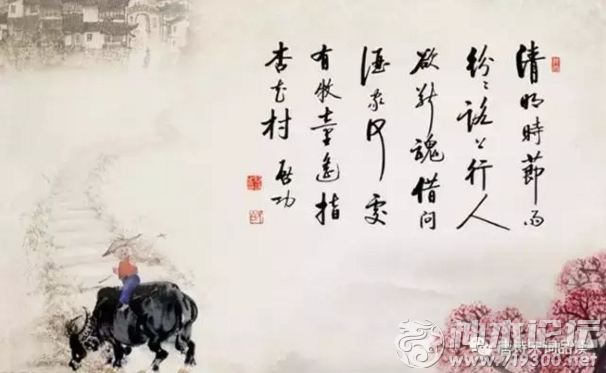 清明時節雨
紛々路上行人
欲斷魂借問
酒家何處
有牧童遙指
杏花村 啟功
神木论坛
www.719300.net